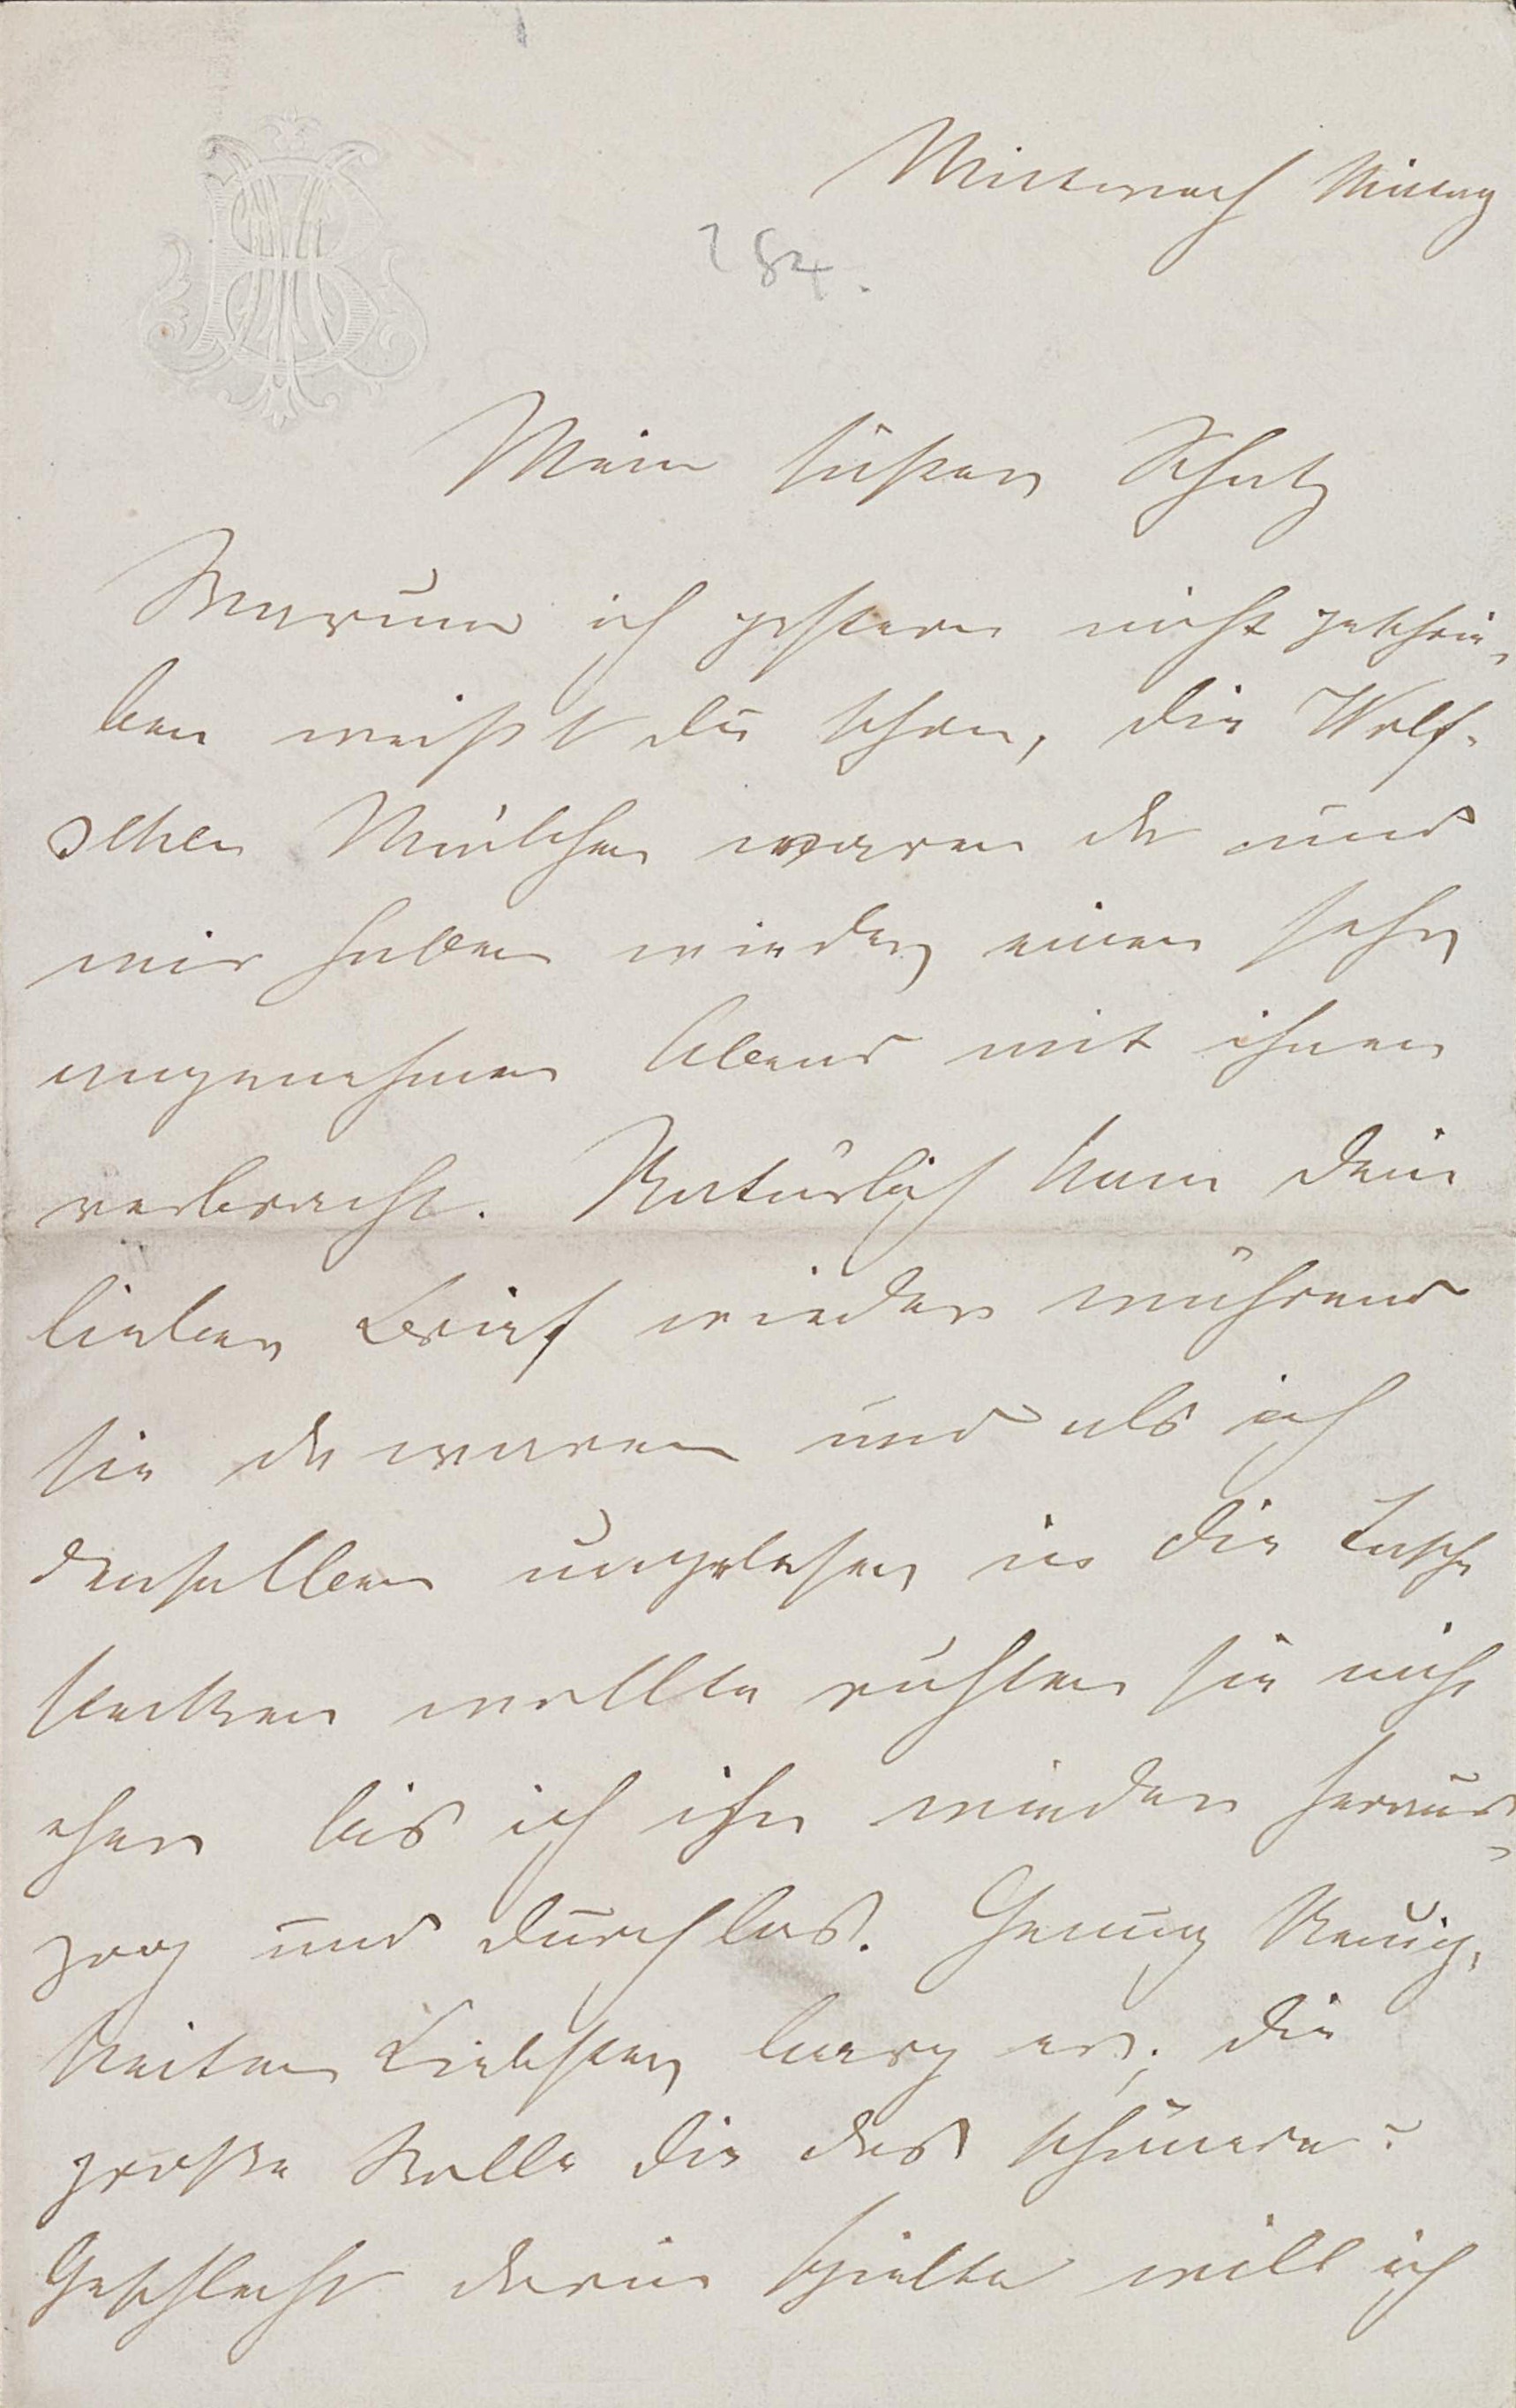 Mittwoch Mittag
284.
Mein süßer Schatz
Warum ich gestern nicht geschrie-
ben weißt du schon, die Wolf-
schen Mädchen waren da und
wir haben wieder einen sehr
angenehmen Abend mit ihnen
verbracht. Natürlich kam dein
lieber Brief wieder während
sie da waren und als ich
denselben ungelesen in die Tasche
stecken wollte ruhten sie nicht
eher bis ich ihn wieder heraus-
zog und durchlas. Genug Neuig-
keiten Liebster barg er; die
große Rolle die das schönere
Geschlecht darin spielte will ich